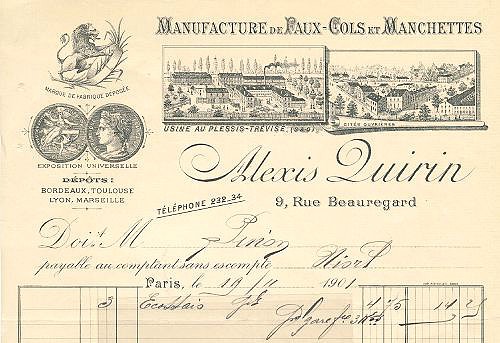 MANUFACTURE DE FAUX-COLS ET MANCHETTES
MARQUE DE FABRIQUE DÉPOSÉE
USINE AU PLESSIS-TRÉVISE, (S&O)
CITÉS OUVRIÈRES
EXPOSITION UNIVERSELLE
DÉPÔTS:
BORDEAUX, TOULOUSE
LYON, MARSEILLE
Alexis Quirin
TÉLÉPHONE 232_34
9, Rue Beauregard
Doit M Pinon
payable au comptant sans escompte Niort
Paris, le 19/4 1901
3 Ecossais 4 75 14 25